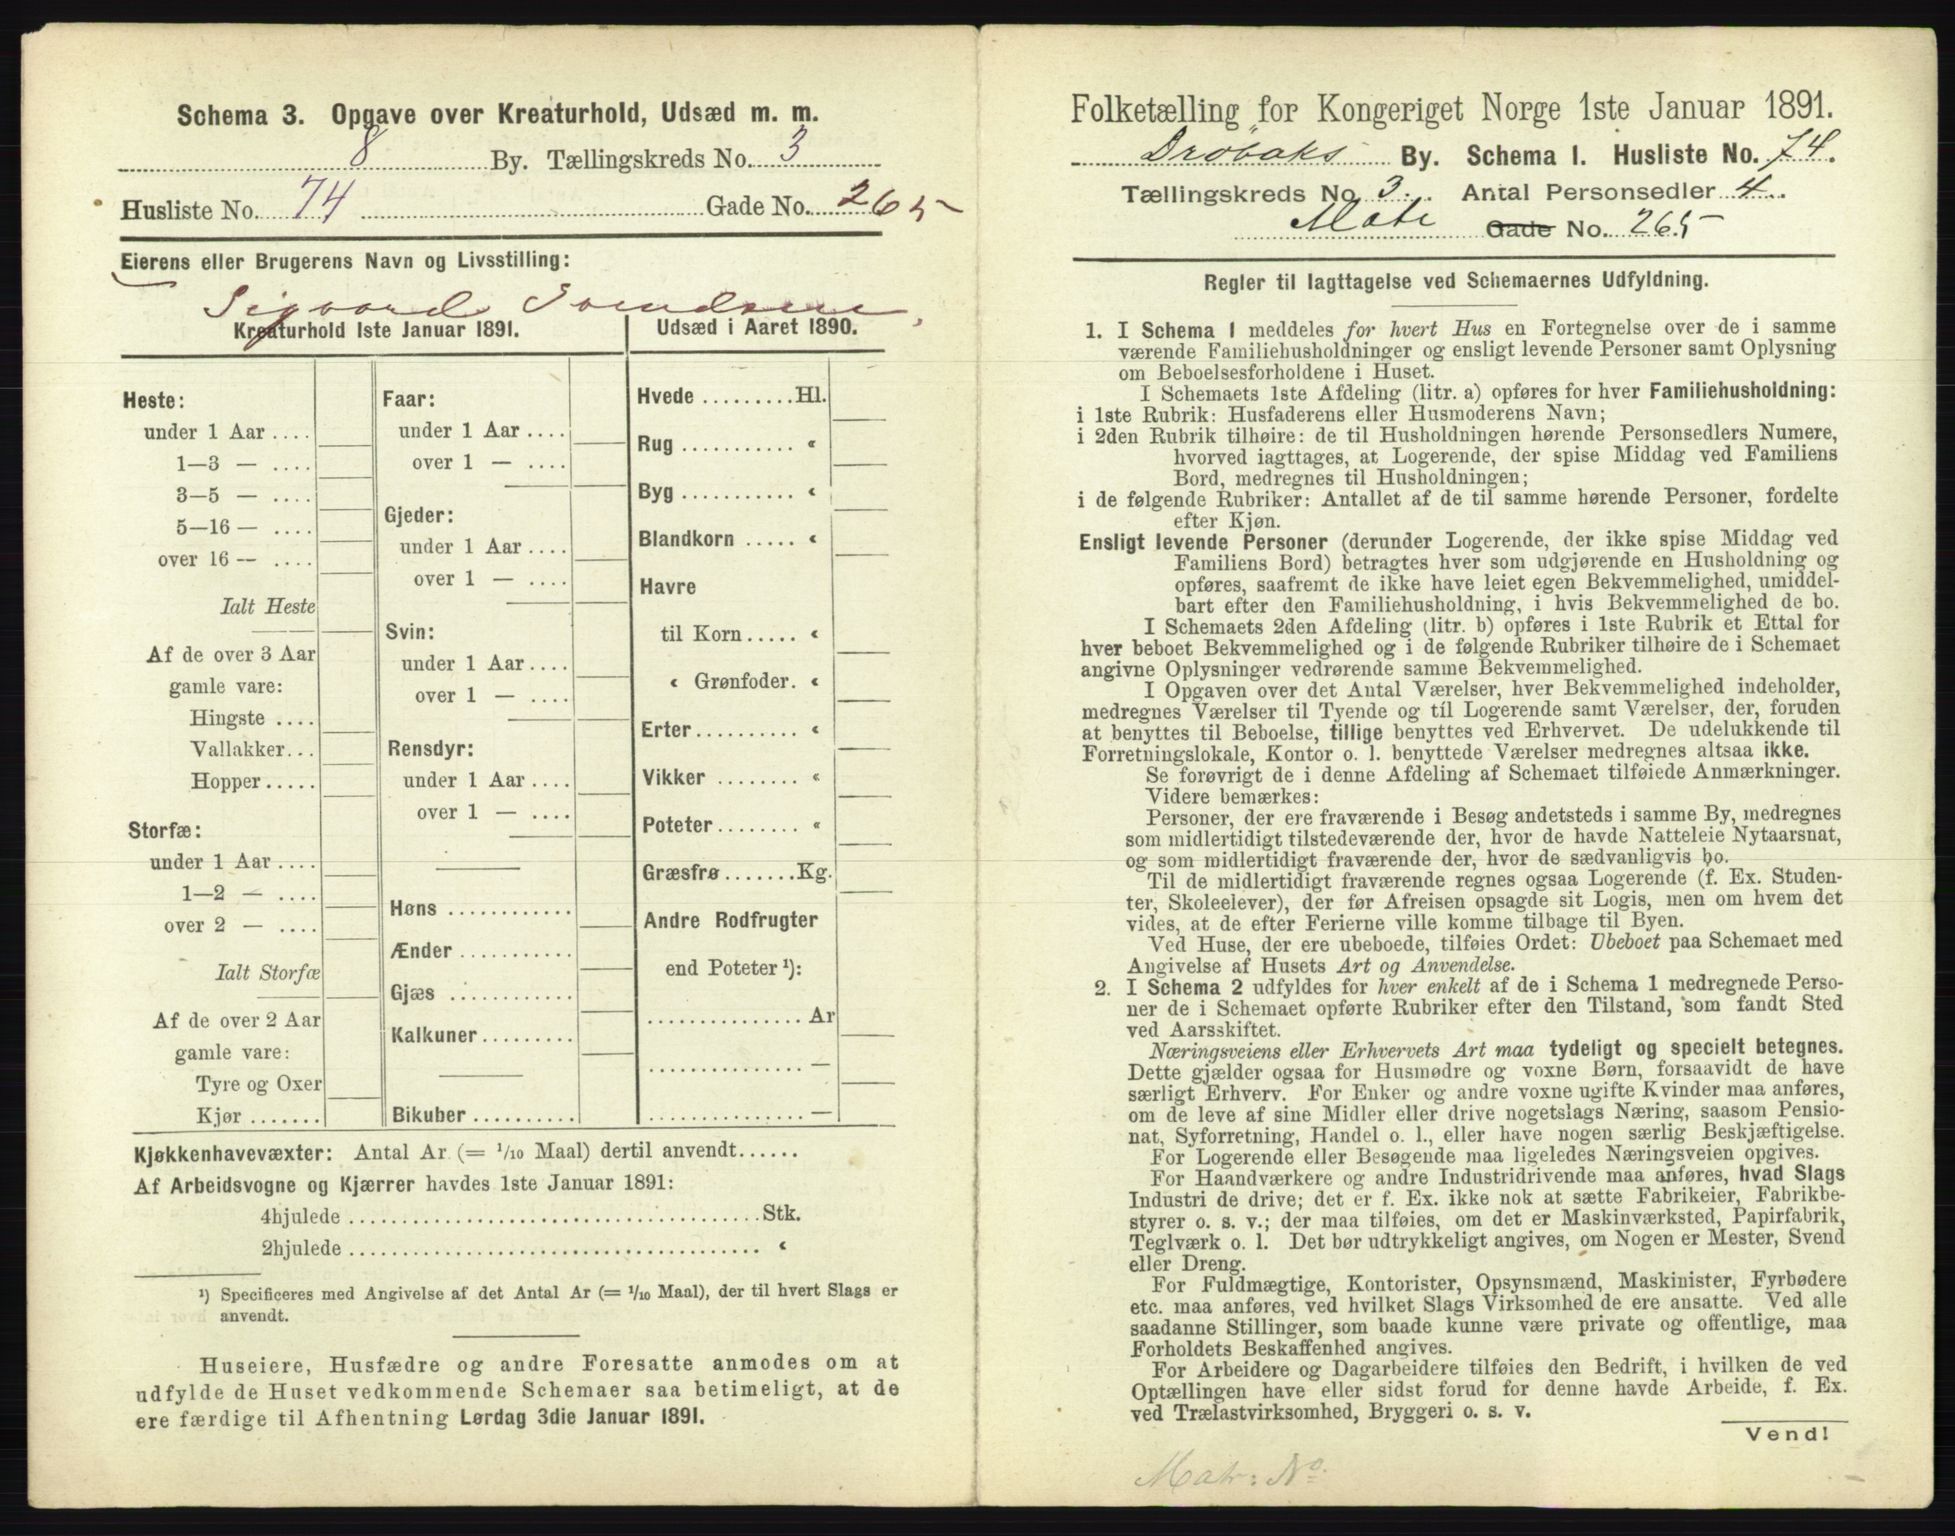 Schema 3. Opgave over Kreaturhold, Udsæd m. m.
8 By. Tællingskreds No. 3
Husliste No. 74 Gade No. 265
Eierens eller Brugerens Navn og Livsstilling:
Sigvard Svendsen
Kreaturhold 1ste Januar 1891.
Heste:
under 1 Aar ....
1—3 — ....
3—5 — ....
5—16 — ....
over 16 — ....
Ialt Heste
Af de over 3 Aar
gamle vare:
Hingste ....
Vallakker...
Hopper.....
Storfæ:
under 1 Aar ....
1—2 — ....
over 2 — ....
Ialt Storfæ
Af de over 2 Aar
gamle vare:
Tyre og Oxer
Kjør .......
Faar:
under 1 Aar ....
over 1 — ....
Gjeder:
under 1 Aar ....
over 1 — ....
Svin:
under 1 Aar ....
over 1 — ....
Rensdyr:
under 1 Aar ....
over 1 — ....
Høns ............
Ænder ............
Gjæs ............
Kalkuner .........
Bikuber ..........
Udsæd i Aaret 1890.
Hvede .........Hl.
Rug ........... «
Byg ........... «
Blandkorn ..... «
Havre
til Korn..... «
« Grønfoder. «
Erter.......... «
Vikker ........ «
Poteter........ «
Græsfrø .......Kg.
Andre Rodfrugter
end Poteter ¹):
............... Ar
............... —
............... —
Kjøkkenhavevæxter: Antal Ar (= 1/10 Maal) dertil anvendt......
Af Arbeidsvogne og Kjærrer havdes 1ste Januar 1891:
4hjulede ........................................Stk.
2hjulede ........................................ «
¹) Specificeres med Angivelse af det Antal Ar (= 1/10 Maal), der til hvert Slags er
anvendt.
Huseiere, Husfædre og andre Foresatte anmodes om at
udfylde de Huset vedkommende Schemaer saa betimeligt, at de
ere færdige til Afhentning Lørdag 3die Januar 1891.
Folketælling for Kongeriget Norge 1ste Januar 1891.
Drøbaks By. Schema 1. Husliste No. 74.
Tællingskreds No. 3. Antal Personsedler 4.
Mats Gade No. 265
Regler til Iagttagelse ved Schemaernes Udfyldning.
1. I Schema 1 meddeles for hvert Hus en Fortegnelse over de i samme
værende Familiehusholdninger og ensligt levende Personer samt Oplysning
om Beboelsesforholdene i Huset.
I Schemaets 1ste Afdeling (litr. a) opføres for hver Familiehusholdning:
i 1ste Rubrik: Husfaderens eller Husmoderens Navn;
i 2den Rubrik tilhøire: de til Husholdningen hørende Personsedlers Numere,
hvorved iagttages, at Logerende, der spise Middag ved Familiens
Bord, medregnes til Husholdningen;
i de følgende Rubriker: Antallet af de til samme hørende Personer, fordelte
efter Kjøn.
Ensligt levende Personer (derunder Logerende, der ikke spise Middag ved
Familiens Bord) betragtes hver som udgjørende en Husholdning og
opføres, saafremt de ikke have leiet egen Bekvemmelighed, umiddel-
bart efter den Familiehusholdning, i hvis Bekvemmelighed de bo.
I Schemaets 2den Afdeling (litr. b) opføres i 1ste Rubrik et Ettal for
hver beboet Bekvemmelighed og i de følgende Rubriker tilhøire de i Schemaet
angivne Oplysninger vedrørende samme Bekvemmelighed.
I Opgaven over det Antal Værelser, hver Bekvemmelighed indeholder,
medregnes Værelser til Tyende og til Logerende samt Værelser, der, foruden
at benyttes til Beboelse, tillige benyttes ved Erhvervet. De udelukkende til
Forretningslokale, Kontor o. l. benyttede Værelser medregnes altsaa ikke.
Se forøvrigt de i denne Afdeling af Schemaet tilføiede Anmærkninger.
Videre bemærkes:
Personer, der ere fraværende i Besøg andetsteds i samme By, medregnes
som midlertidigt tilstedeværende der, hvor de havde Natteleie Nytaarsnat,
og som midlertidigt fraværende der, hvor de sædvanligvis bo.
Til de midlertidigt fraværende regnes ogsaa Logerende (f. Ex. Studen-
ter, Skoleelever), der før Afreisen opsagde sit Logis, men om hvem det
vides, at de efter Ferierne ville komme tilbage til Byen.
Ved Huse, der ere ubeboede, tilføies Ordet: Ubeboet paa Schemaet med
Angivelse af Husets Art og Anvendelse.
2. I Schema 2 udfyldes for hver enkelt af de i Schema 1 medregnede Perso-
ner de i Schemaet opførte Rubriker efter den Tilstand, som fandt Sted
ved Aarsskiftet.
Næringsveiens eller Erhvervets Art maa tydeligt og specielt betegnes.
Dette gjælder ogsaa for Husmødre og voxne Børn, forsaavidt de have
særligt Erhverv. For Enker og andre voxne ugifte Kvinder maa anføres,
om de leve af sine Midler eller drive nogetslags Næring, saasom Pensio-
nat, Syforretning, Handel o. l., eller have nogen særlig Beskjæftigelse.
For Logerende eller Besøgende maa ligeledes Næringsveien opgives.
For Haandværkere og andre Industridrivende maa anføres, hvad Slags
Industri de drive; det er f. Ex. ikke nok at sætte Fabrikeier, Fabrikbe-
styrer o. s. v.; der maa tilføies, om det er Maskinværksted, Papirfabrik,
Teglværk o. l. Det bør udtrykkeligt angives, om Nogen er Mester, Svend
eller Dreng.
For Fuldmægtige, Kontorister, Opsynsmænd, Maskinister, Fyrbødere
etc. maa anføres, ved hvilket Slags Virksomhed de ere ansatte. Ved alle
saadanne Stillinger, som baade kunne være private og offentlige, maa
Forholdets Beskaffenhed angives.
For Arbeidere og Dagarbeidere tilføies den Bedrift, i hvilken de ved
Optællingen have eller sidst forud for denne havde Arbeide, f. Ex.
ved Trælastvirksomhed, Bryggeri o. s. v.
Vend!
Matr: No.